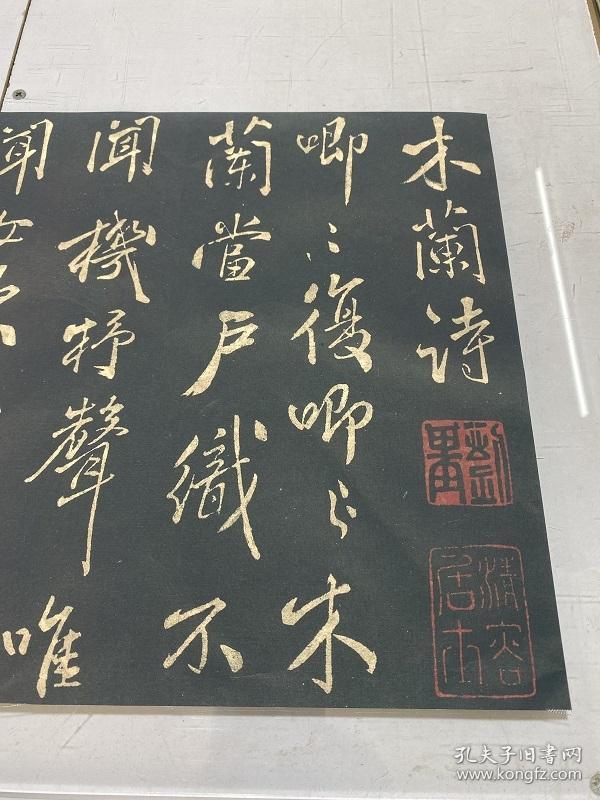 木蘭詩
唧〻復唧〻木
蘭當戶織不
聞機杼聲唯
聞女
孔夫子旧书网
www.kongfz.com